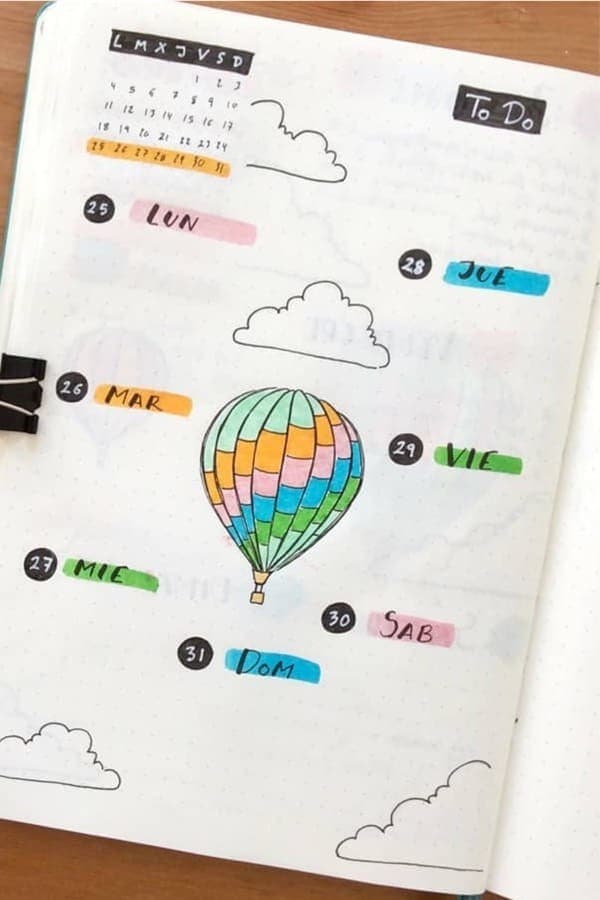 L M X J V S D
1 2 3
4 5 6 7 8 9 10
11 12 13 14 15 16 17
18 19 20 21 22 23 24
25 26 27 28 29 30 31
To Do
25 LUN
28 JUE
26 MAR
29 VIE
27 MIE
30 SAB
31 DOM